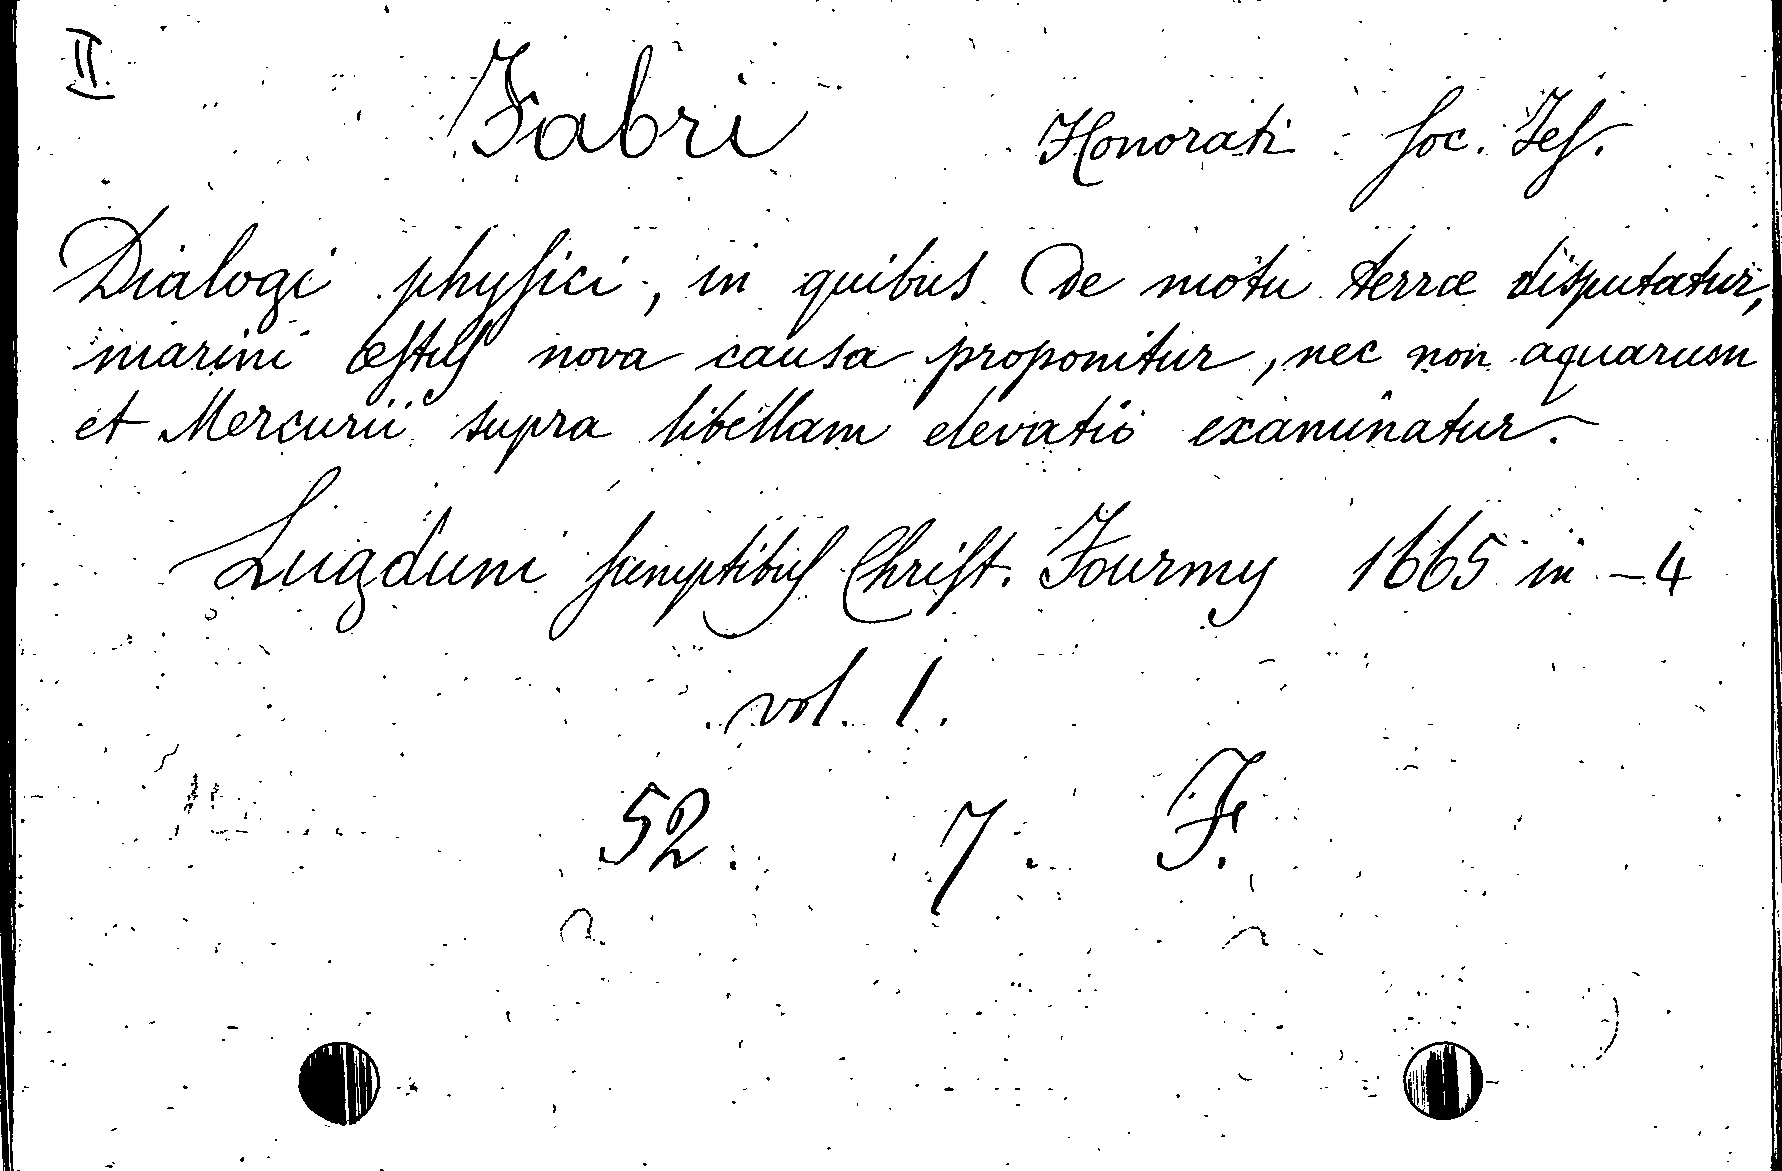 II.
Fabri Honorati Soc. Jes.
Dialogi physici, in quibus De motu terræ disputatur,
marini æstus nova causa proponitur, nec non aquarum
et Mercurii supra libellam elevatio examinatur.
Lugduni sumptibus Christ. Fourmy 1665 in -4
vol. 1.
52. 7. F.